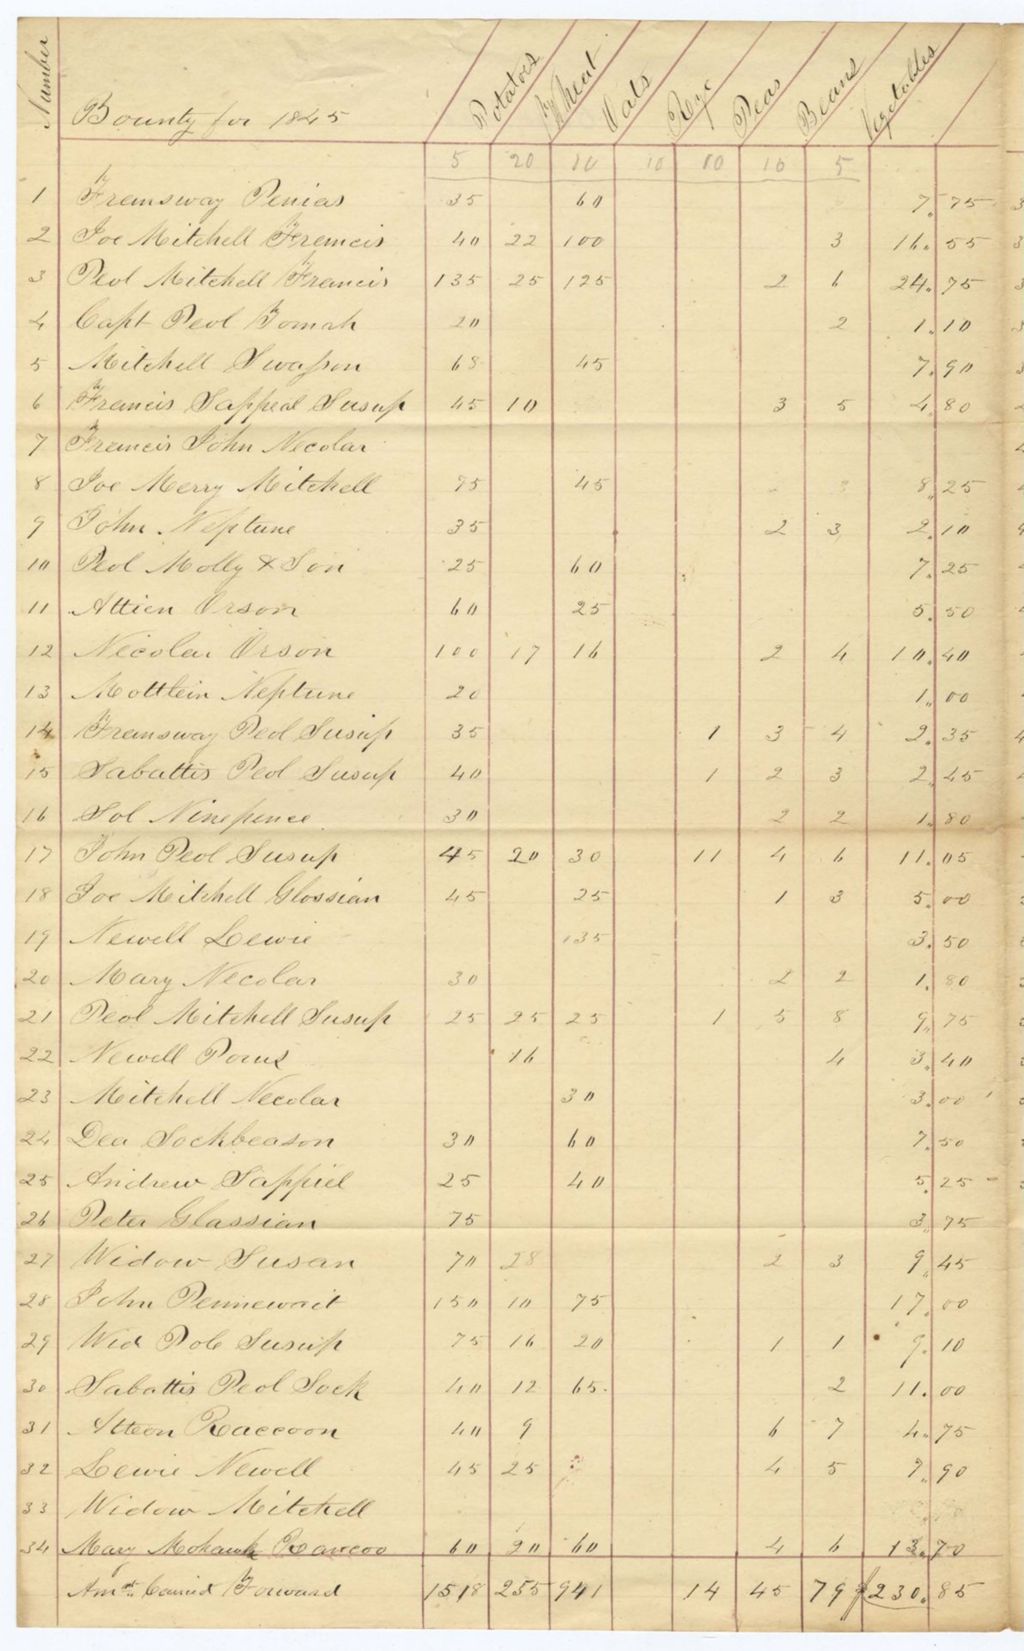 Number Bounty for 1845 Potatoes Wheat Oats Rye Peas Beans Vegetables
5 20 10 10 10 10 5
1 Fremsway Penias 35 60 7.75
2 Joe Mitchell Francis 40 22 100 3 16.55
3 Peol Mitchell Francis 135 25 125 2 6 24.75
4 Capt Peol Tomah 20 2 1.10
5 Mitchell Swasson 68 45 7.90
6 Francis Sappeal Susup 45 10 3 5 4.80
7 Francis John Necolar
8 Joe Merry Mitchell 75 45 8.25
9 John Neptune 35 2 3 2.10
10 Peol Molly & Son 25 60 7.25
11 Attien Orson 60 25 5.50
12 Necolar Orson 100 17 16 2 4 10.40
13 Mottlein Neptune 20 1.00
14 Fremsway Peol Susup 35 1 3 4 2.35
15 Sabattis Peol Susup 40 1 2 3 2.45
16 Sol Ninepence 30 2 2 1.80
17 John Peol Susup 45 20 30 11 4 6 11.05
18 Joe Mitchell Glossian 45 25 1 3 5.00
19 Newell Lewie 35 3.50
20 Mary Necolar 30 2 2 1.80
21 Peol Mitchell Susup 25 25 25 1 5 8 9.75
22 Newell Porus 16 4 3.40
23 Mitchell Necolar 30 3.00
24 Dea Sockbeason 30 60 7.50
25 Andrew Sappiel 25 40 5.25
26 Peter Glassian 75 3.75
27 Widow Susan 70 28 2 3 9.45
28 John Pennewait 150 10 75 17.00
29 Wid Pole Susup 75 16 20 1 1 9.10
30 Sabattis Peol Sock 40 12 65 2 11.00
31 Atteon Raccoon 40 9 6 7 4.75
32 Lewie Newell 45 25 4 5 7.90
33 Widow Mitchell
34 Mary Mohawk 60 20 60 4 6 13.70
Amt. Carried Forward 1518 255 941 14 45 79 $230.85